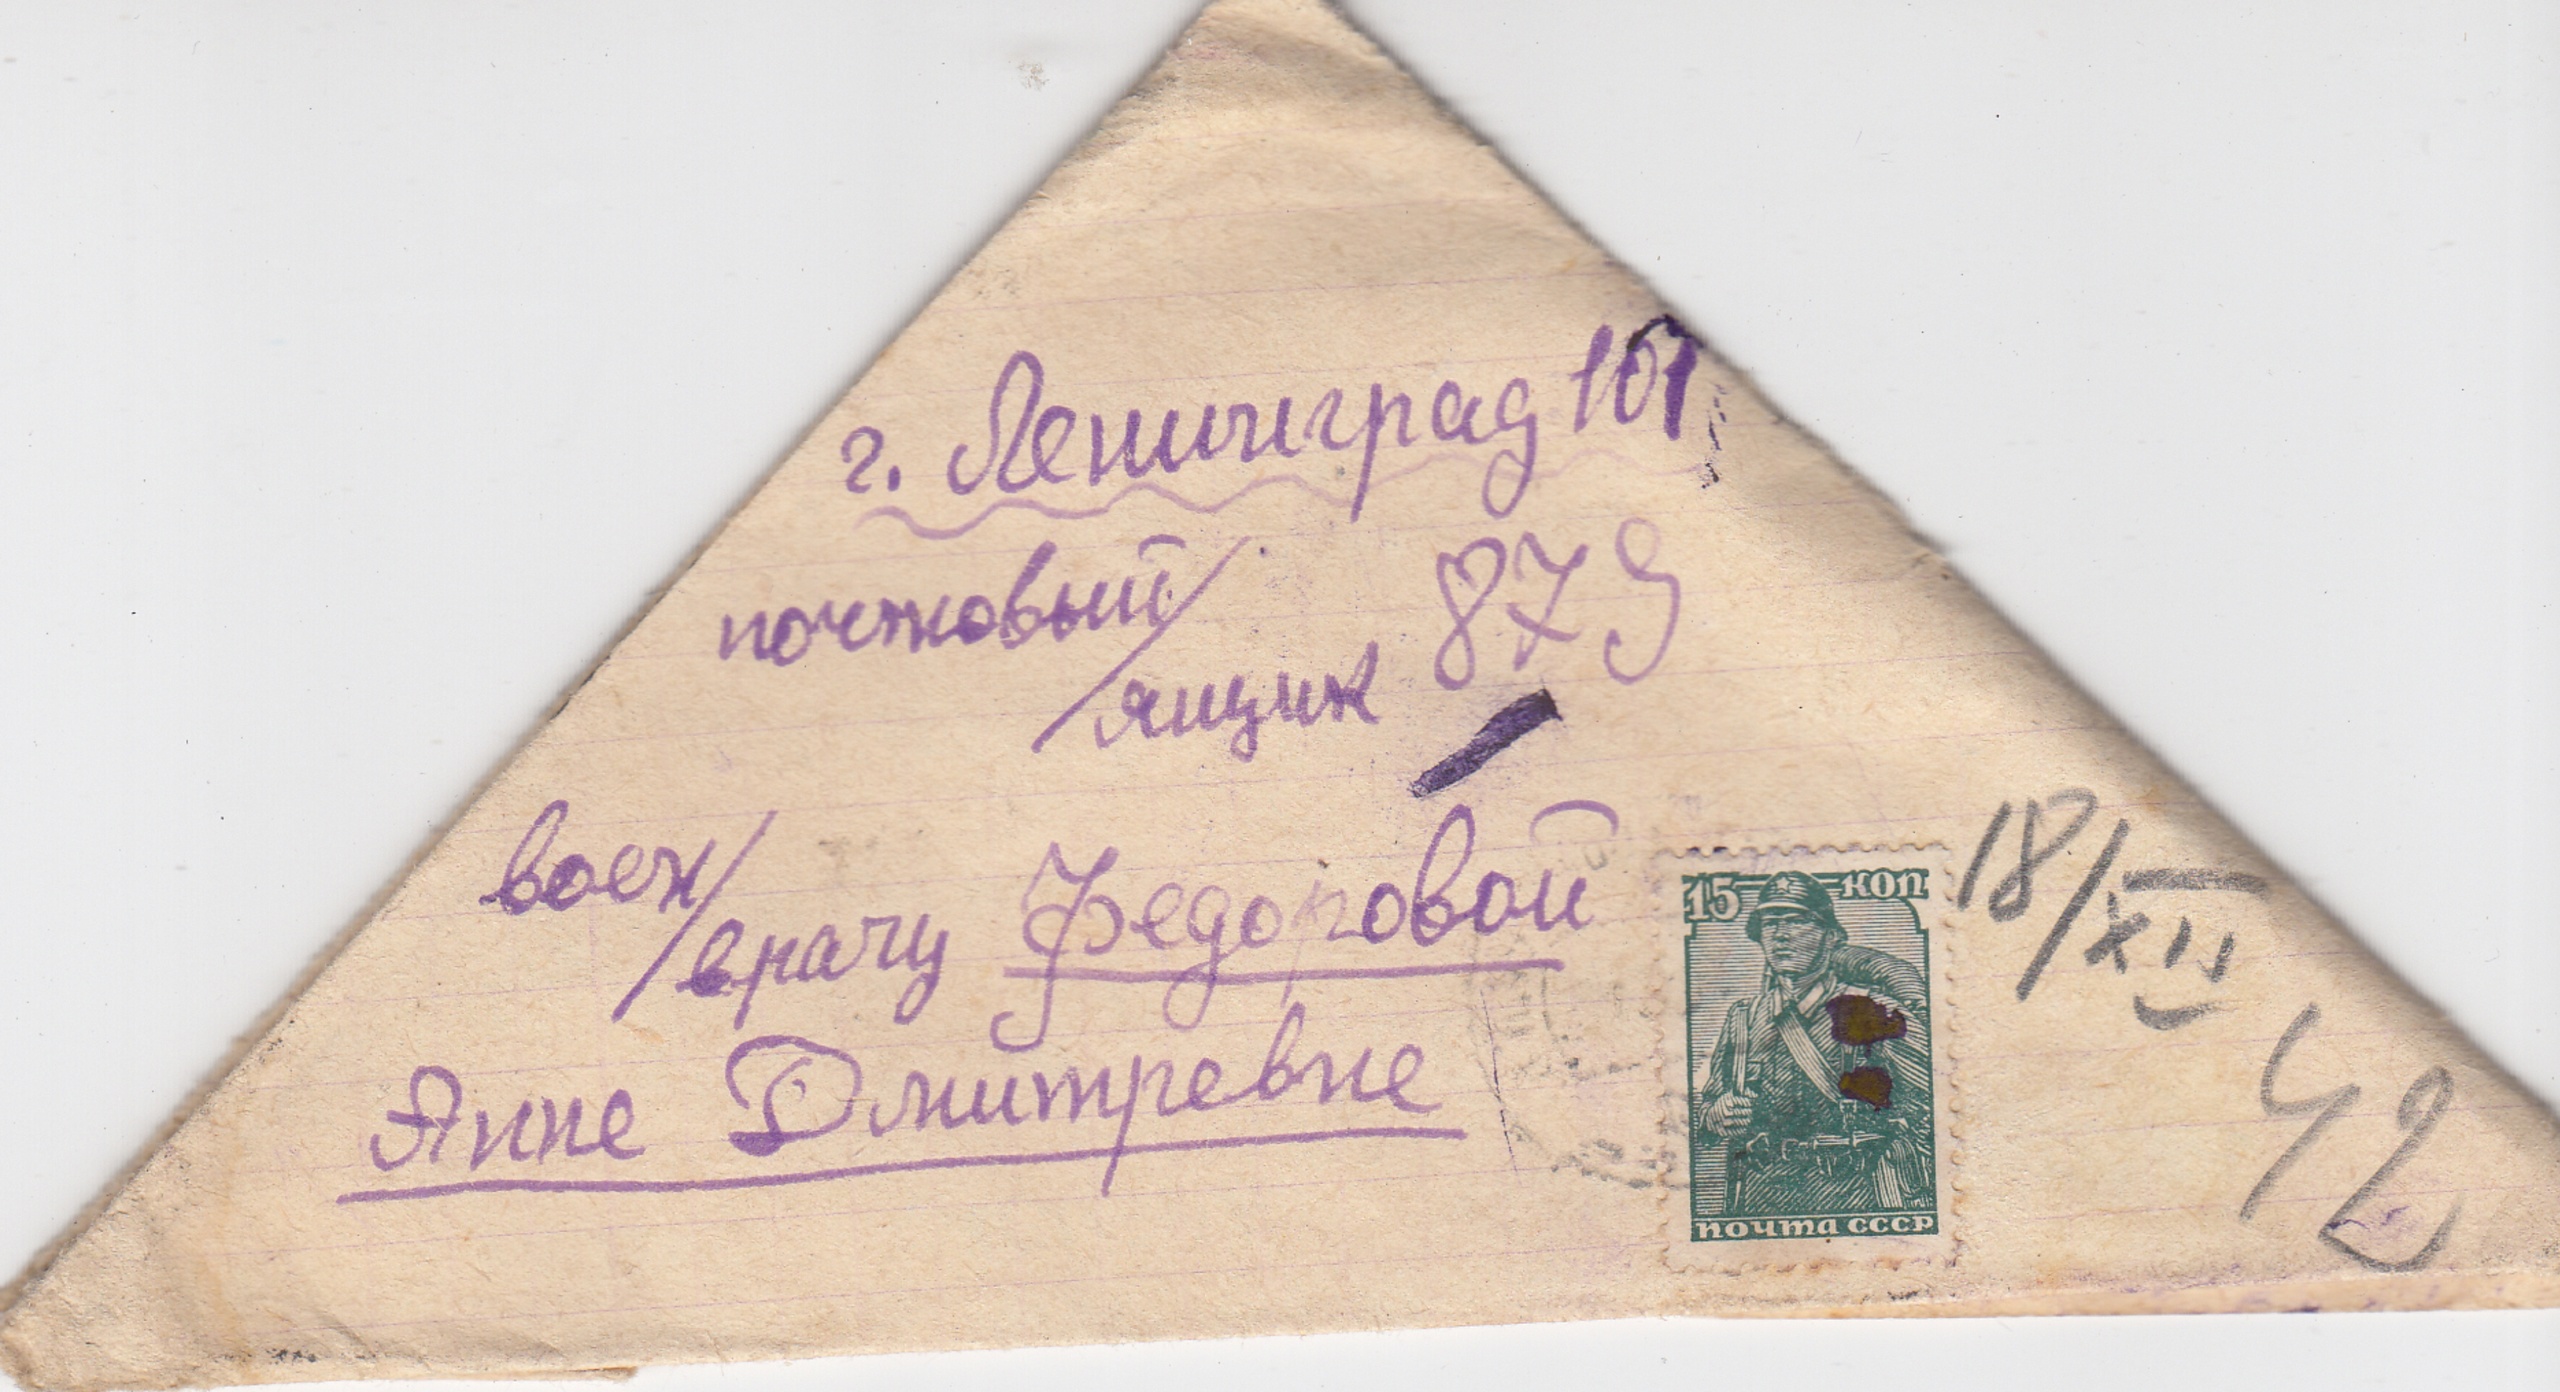 г. Ленинград 101
почтовый/
/ящик 879
воен/
/врачу Федоровой
Анне Дмитревне
15 КОП
ПОЧТА СССР
18/XII
42